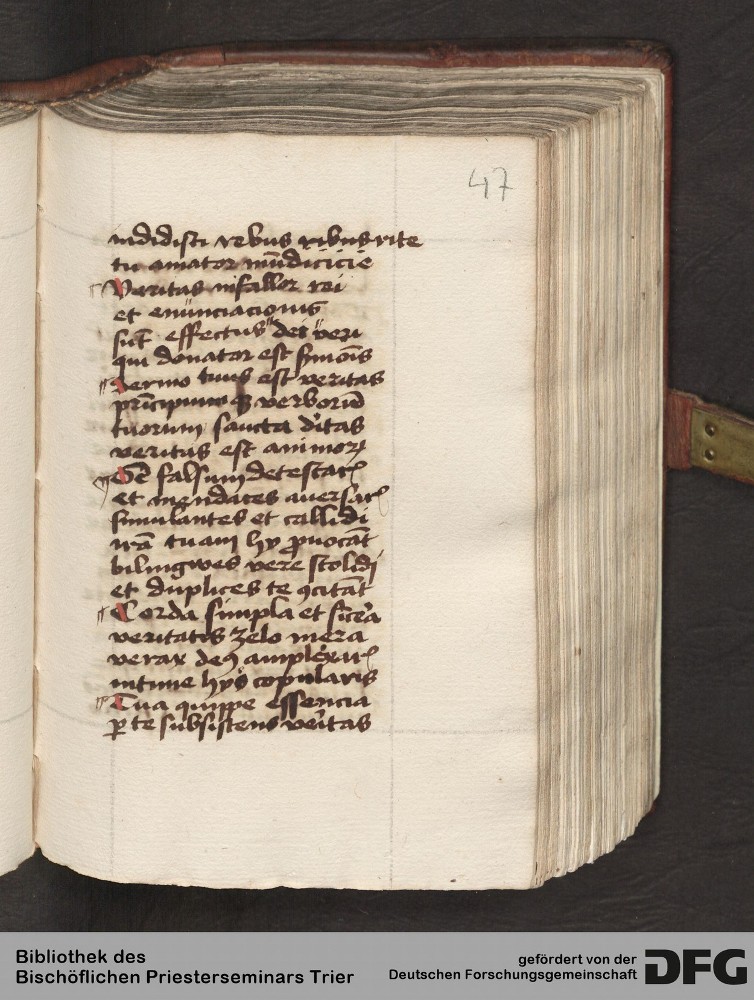 47
indidisti rebus ribus rite
tu amator mūdicicie
Veritas infallor rei
et enunciacionis
sūt effectus dei veri
qui donator est
Sermo tuus est veritas
principium qȝ verborū
tuorum sancta ditas
veritas est animoꝝ
falsum detestar̄
et mendaces auersar̄
simulantes et callidi
irā tuam hy ꝓuocāt
bilingwes vere stolidi
et duplices te ꝯcitāt
Corda simpla et sīcera
veritatis zelo mera
verax deꝰ amplexar̄
intime hys copularis
Tua quippe essencia
ꝑ te subsistens veritas
Bibliothek des
Bischöflichen Priesterseminars Trier
gefördert von der
Deutschen Forschungsgemeinschaft
DFG